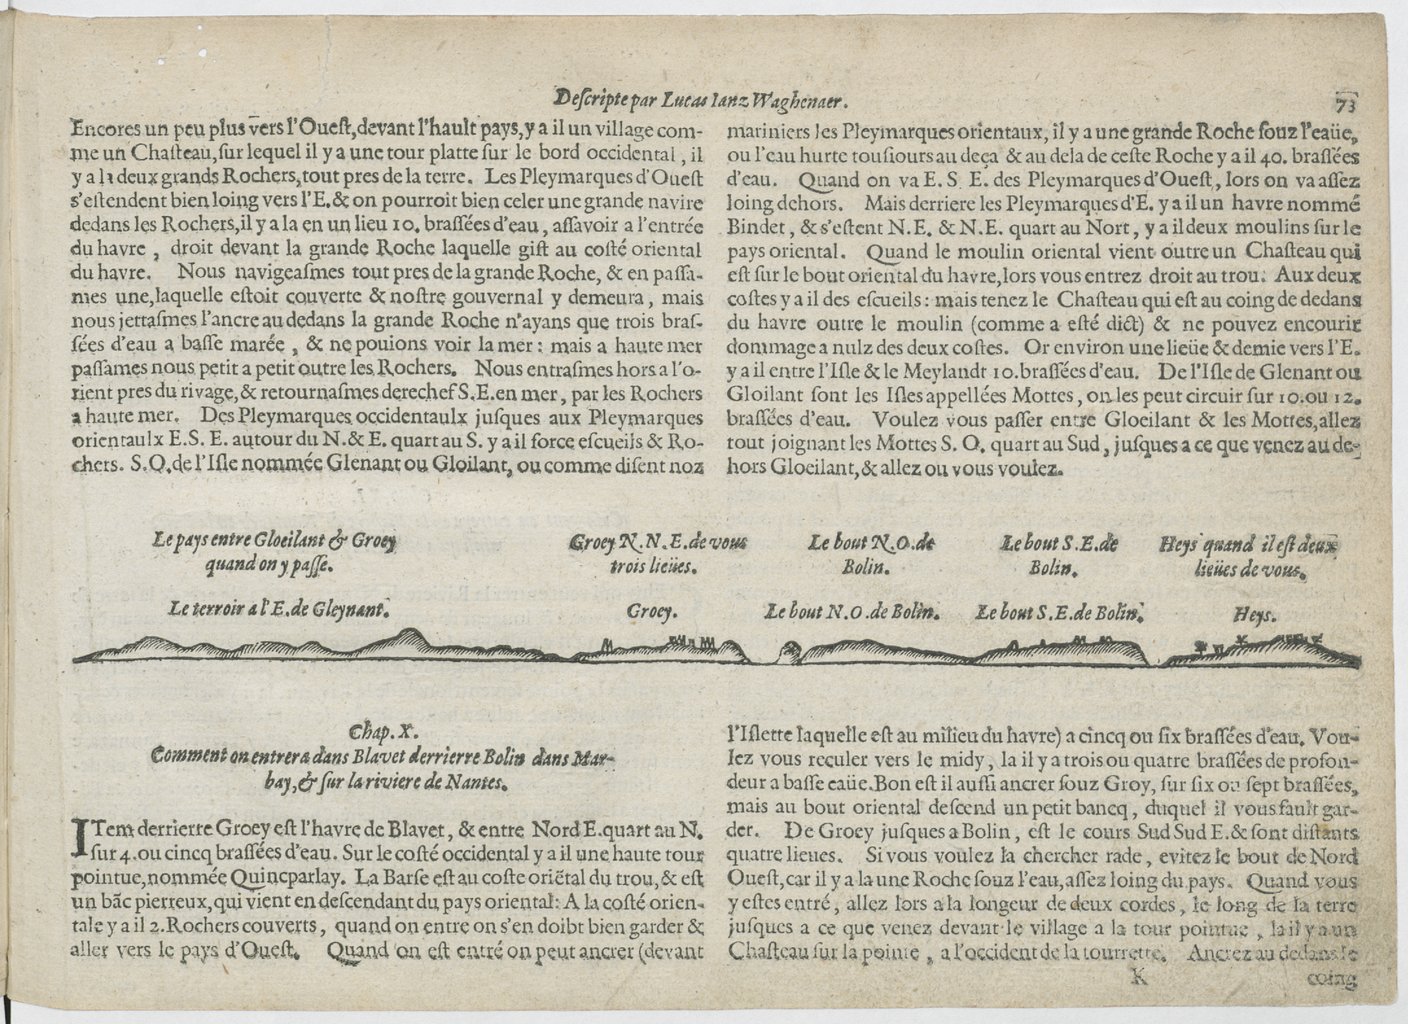 Descripte par Lucas Ianz Waghenaer.
73
Encores un peu plus vers l'Ouest, devant l'hault pays, y a il un village com-
me un Chasteau, sur lequel il y a une tour platte sur le bord occidental, il
y a la deux grands Rochers, tout pres de la terre. Les Pleymarques d'Ouest
s'estendent bien loing vers l'E. & on pourroit bien celer une grande navire
dedans les Rochers, il y a la en un lieu 10. brassées d'eau, assavoir a l'entrée
du havre, droit devant la grande Roche laquelle gist au costé oriental
du havre. Nous navigeasmes tout pres de la grande Roche, & en passa-
mes une, laquelle estoit couverte & nostre gouvernal y demeura, mais
nous jettasmes l'ancre au dedans la grande Roche n'ayans que trois bras-
sées d'eau a basse marée, & ne pouions voir la mer: mais a haute mer
passames nous petit a petit outre les Rochers. Nous entrasmes hors a l'o-
rient pres du rivage, & retournasmes derechef S.E. en mer, par les Rochers
a haute mer. Des Pleymarques occidentaulx jusques aux Pleymarques
orientaulx E.S.E. autour du N. & E. quart au S. y a il force escueils & Ro-
chers. S.O. de l'Isle nommée Glenant ou Gloilant, ou comme disent noz
mariniers les Pleymarques orientaux, il y a une grande Roche souz l'eaüe,
ou l'eau hurte tousiours au deça & au dela de ceste Roche y a il 40. brassées
d'eau. Quand on va E. S. E. des Pleymarques d'Ouest, lors on va assez
loing dehors. Mais derriere les Pleymarques d'E. y a il un havre nommé
Bindet, & s'estent N.E. & N.E. quart au Nort, y a il deux moulins sur le
pays oriental. Quand le moulin oriental vient outre un Chasteau qui
est sur le bout oriental du havre, lors vous entrez droit au trou. Aux deux
costes y a il des escueils: mais tenez le Chasteau qui est au coing de dedans
du havre outre le moulin (comme a esté dict) & ne pouvez encourir
dommage a nulz des deux costes. Or environ une lieüe & demie vers l'E.
y a il entre l'Isle & le Meylandt 10. brassées d'eau. De l'Isle de Glenant ou
Gloilant sont les Isles appellées Mottes, on les peut circuir sur 10. ou 12.
brassées d'eau. Voulez vous passer entre Gloeilant & les Mottes, allez
tout joignant les Mottes S. O. quart au Sud, jusques a ce que venez au de-
hors Gloeilant, & allez ou vous voulez.
Le pays entre Gloeilant & Groey
quand on y passe.
Groey N.N.E. de vous
trois lieües.
Le bout N.O. de
Bolin.
Le bout S.E. de
Bolin.
Heys quand il est deux
lieües de vous.
Le terroir a l'E. de Gleynant.
Groey.
Le bout N.O. de Bolin.
Le bout S.E. de Bolin.
Heys.
Chap. X.
Comment on entrera dans Blavet derrierre Bolin dans Mar-
bay, & sur la riviere de Nantes.
ITem derrierre Groey est l'havre de Blavet, & entre Nord E. quart au N.
sur 4. ou cincq brassées d'eau. Sur le costé occidental y a il une haute tour
pointue, nommée Quincparlay. La Barse est au coste oriẽtal du trou, & est
un bãc pierreux, qui vient en descendant du pays oriental: A la costé orien-
tale y a il 2. Rochers couverts, quand on entre on s'en doibt bien garder &
aller vers le pays d'Ouest. Quand on est entré on peut ancrer (devant
l'Islette laquelle est au milieu du havre) a cincq ou six brassées d'eau. Vou-
lez vous reculer vers le midy, la il y a trois ou quatre brassées de profon-
deur a basse eaüe. Bon est il aussi ancrer souz Groy, sur six ou sept brassées,
mais au bout oriental descend un petit bancq, duquel il vous fault gar-
der. De Groey jusques a Bolin, est le cours Sud Sud E. & sont distants
quatre lieues. Si vous voulez la chercher rade, evitez le bout de Nord
Ouest, car il y a la une Roche souz l'eau, assez loing du pays. Quand vous
y estes entré, allez lors a la longeur de deux cordes, le long de la terre
jusques a ce que venez devant le village a la tour pointue, la il y a un
Chasteau sur la pointe, a l'occident de la tourrette. Ancrez au dedans le
K
coing